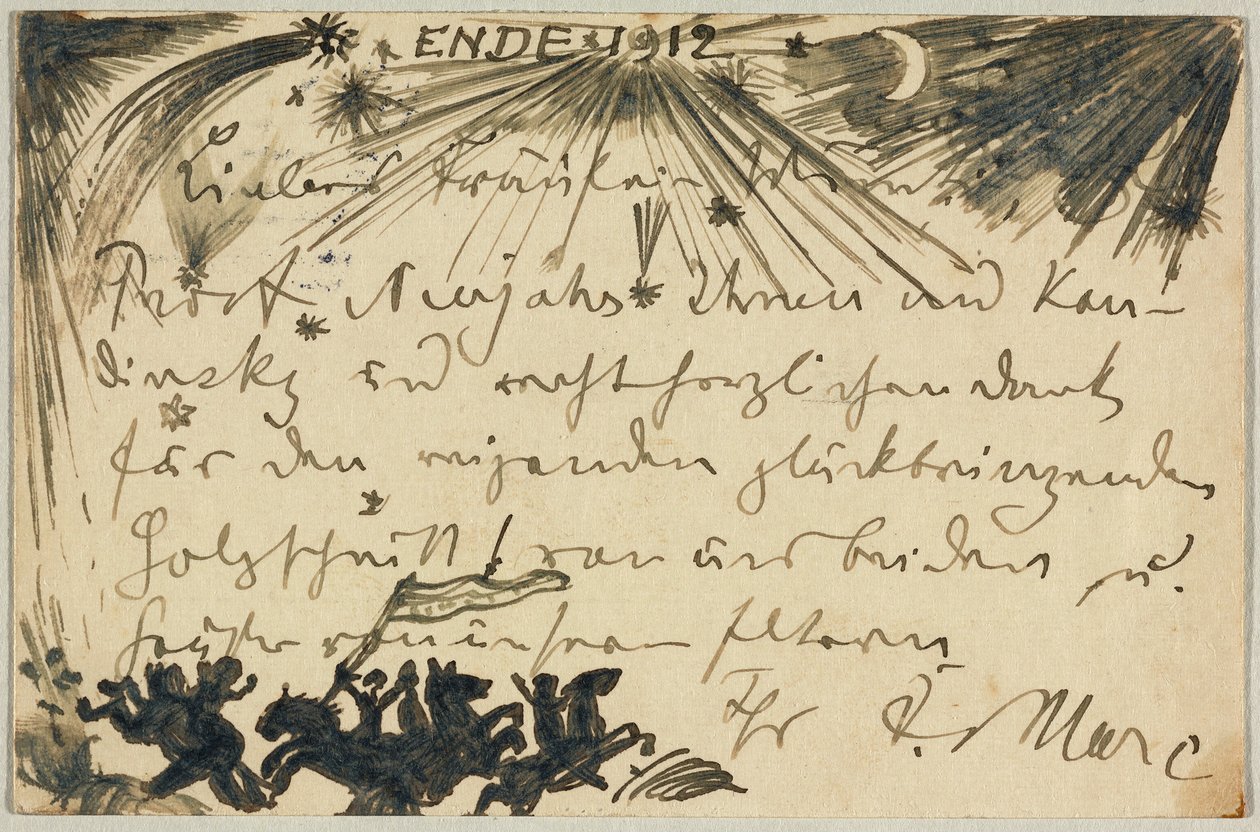 ENDE 1912
Liebes Fräulein Münter,
Prost Neujahr Ihnen und Kan-
dinsky und recht herzlichen Dank
für den reizenden glückbringenden
Holzschnitt! von uns beiden u.
von unseren Eltern
Ihr F. Marc